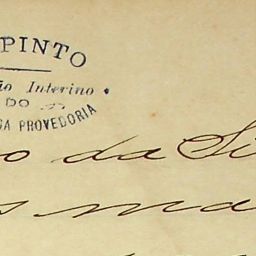 PINTO
ão Interino
DO
GA PROVEDORIA
o da Si
s ma